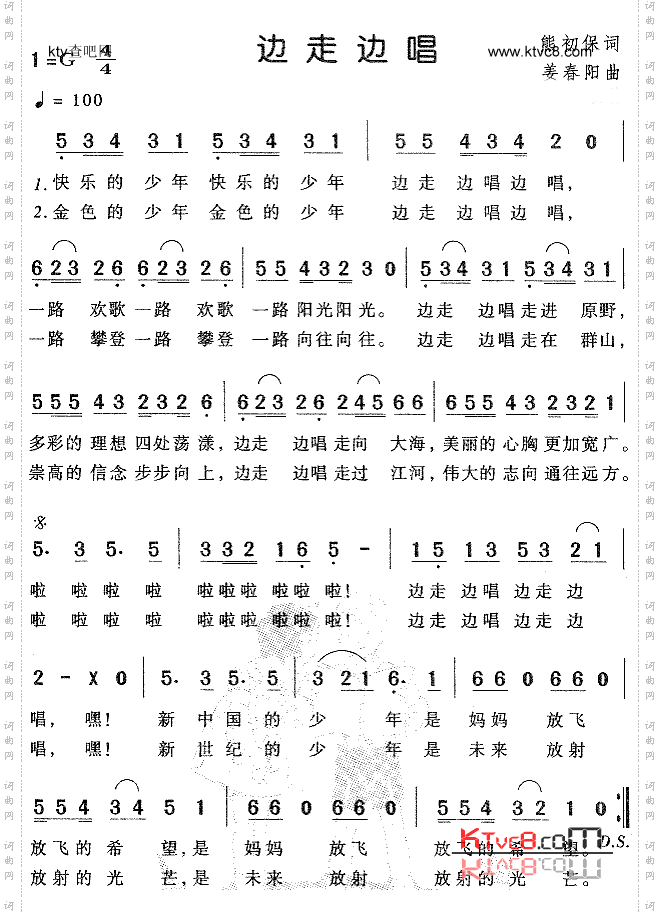 ktv查吧网
边走边唱
www.ktvc8.com
熊初保词
1=G 4/4
姜春阳曲
♩= 100
5 3 4 3 1 5 3 4 3 1 | 5 5 4 3 4 2 0
1.快乐的 少年 快乐的 少年 边走 边唱边 唱,
2.金色的 少年 金色的 少年 边走 边唱边 唱,
6 2 3 2 6 6 2 3 2 6 | 5 5 4 3 2 3 0 | 5 3 4 3 1 5 3 4 3 1
一路 欢歌 一路 欢歌 一路 阳光阳光。 边走 边唱走进 原野,
一路 攀登 一路 攀登 一路 向往向往。 边走 边唱走在 群山,
5 5 5 4 3 2 3 2 6 | 6 2 3 2 6 2 4 5 6 6 | 6 5 5 4 3 2 3 2 1
多彩的 理想 四处荡 漾, 边走 边唱 走向 大海, 美丽的 心胸 更加宽广。
崇高的 信念 步步向 上, 边走 边唱 走过 江河, 伟大的 志向 通往远方。
5. 3 5. 5 | 3 3 2 1 6 5 - | 1 5 1 3 5 3 2 1
啦 啦 啦 啦 啦啦啦 啦啦 啦! 边走 边唱 边走 边
啦 啦 啦 啦 啦啦啦 啦啦 啦! 边走 边唱 边走 边
2 - X 0 | 5. 3 5. 5 | 3 2 1 6. 1 | 6 6 0 6 6 0
唱, 嘿! 新 中 国 的 少 年 是 妈妈 放飞
唱, 嘿! 新 世 纪 的 少 年 是 未来 放射
5 5 4 3 4 5 1 | 6 6 0 6 6 0 | 5 5 4 3 2 1 0 :|
D.S.
放飞的 希 望,是 妈妈 放飞 放飞的 希 望。
放射的 光 芒,是 未来 放射 放射的 光 芒。
KTvc8.com
词曲网